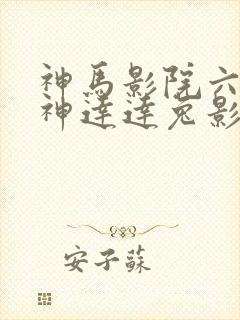 神馬影院六
神達達兔影
安子蘇